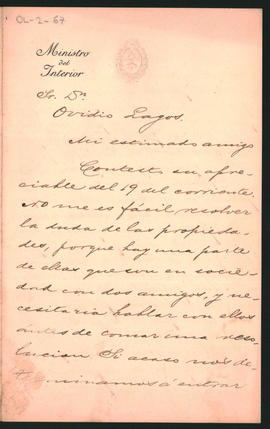 OL-2-67
Ministro
del
Interior
Sr. Dn
Ovidio Lagos.
Mi estimado amigo
Contesto su apre-
ciable del 19 del corriente.
No me es fácil resolver
la duda de las propieda-
des, porque hay una parte
de ellas que son en socie-
dad con dos amigos, y ne-
cesitaria hablar con ellos
antes de tomar una reso-
lucion. Si acaso nos de-
terminamos á entrar